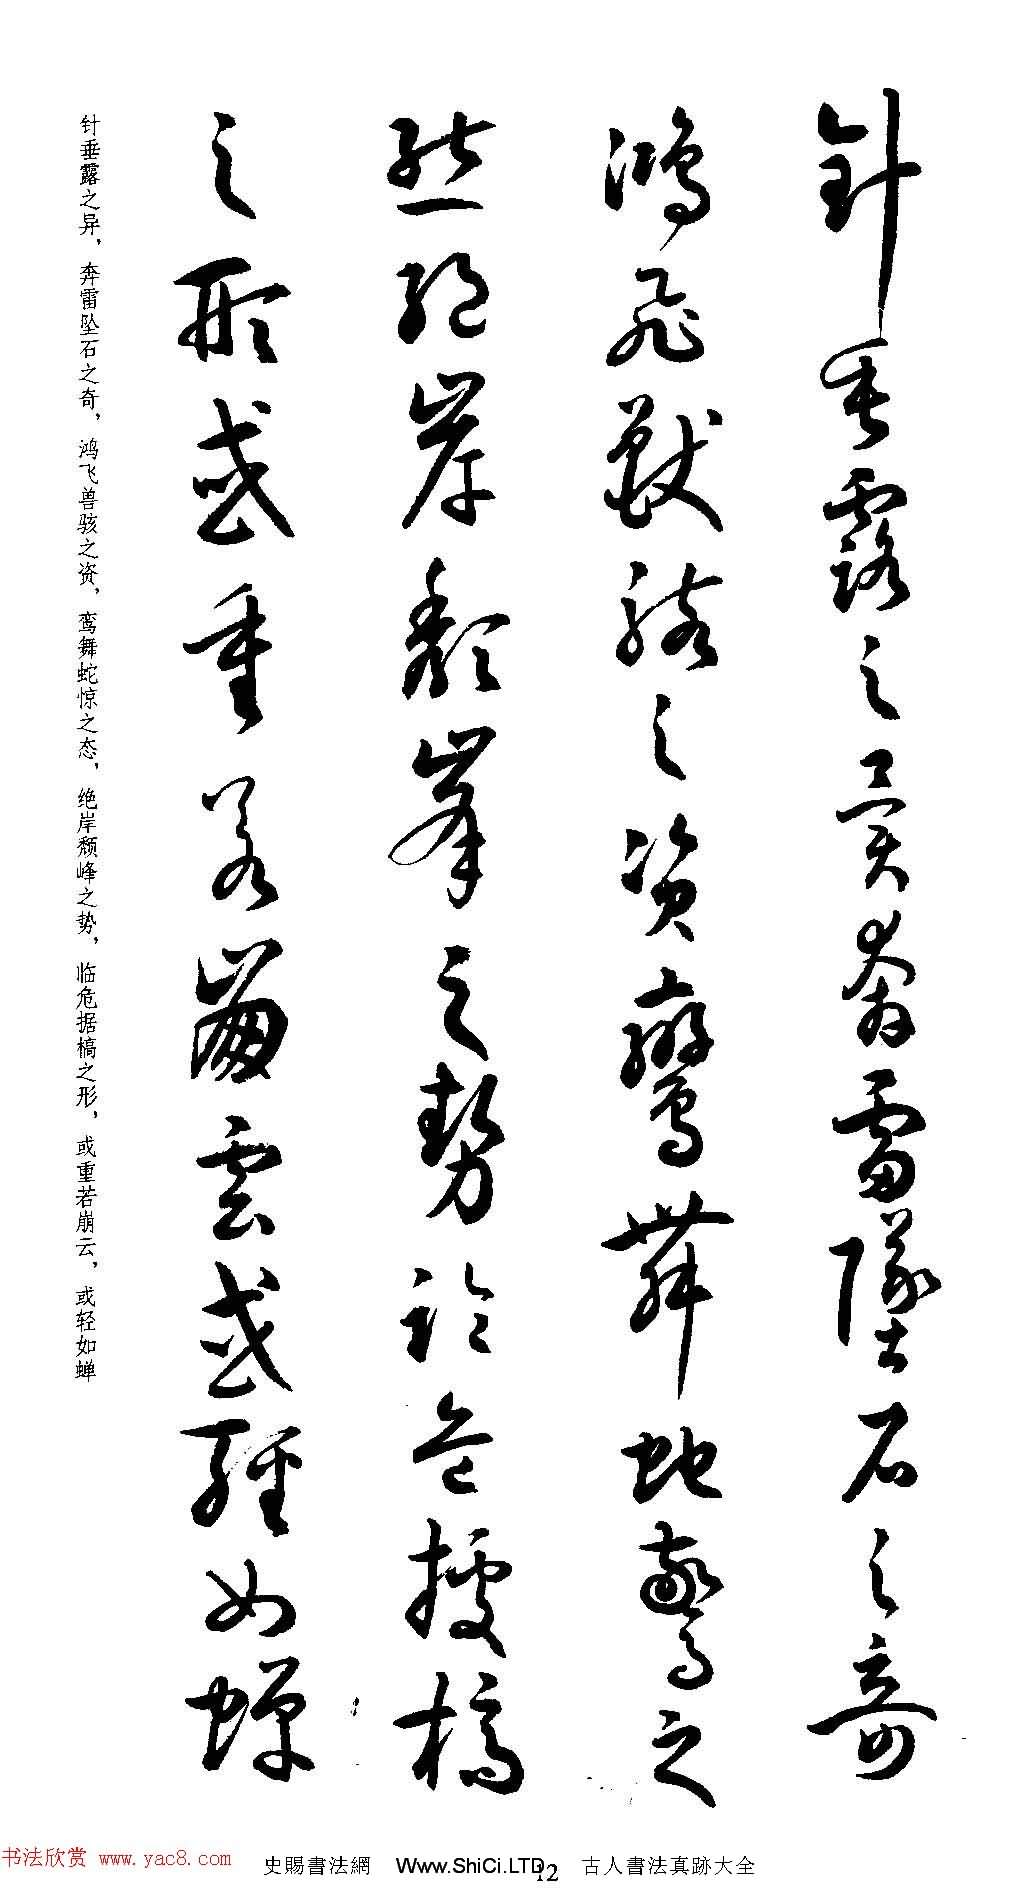 針垂露之異奔雷墜石之奇
鴻飛獸駭之資鸞舞蛇驚之
態絕岸頹峯之勢臨危據槁
之形或重若崩雲或輕如蟬
针垂露之异，奔雷坠石之奇，鸿飞兽骇之资，鸾舞蛇惊之态，绝岸颓峰之势，临危据槁之形，或重若崩云，或轻如蝉
书法欣赏 www.yac8.com
史賜書法網 Www.ShiCi.LTD
12
古人書法真跡大全